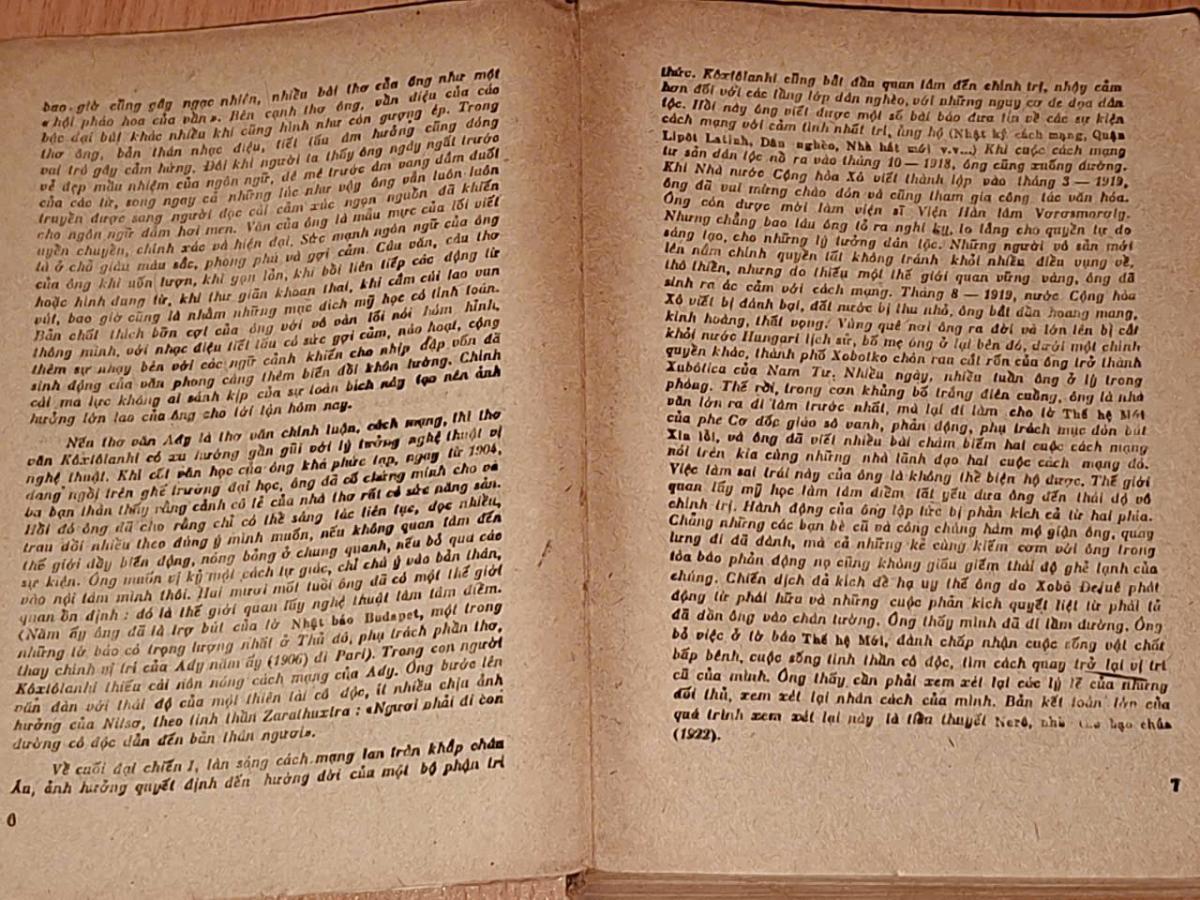 bao giờ cũng gây ngạc nhiên, nhiều bài thơ của ông như một
« hội pháo hoa của vần ». Bên cạnh thơ ông, vần điệu của các
bậc đại bút khác nhiều khi cũng hình như còn gượng ép. Trong
thơ ông, bản thân nhạc điệu, tiết tấu âm hưởng cũng đóng
vai trò gây cảm hứng. Đôi khi người ta thấy ông ngây ngất trước
vẻ đẹp mầu nhiệm của ngôn ngữ, đê mê trước âm vang đắm đuối
của các từ, song ngay cả những lúc như vậy ông vẫn luôn luôn
truyền được sang người đọc cái cảm xúc ngọn nguồn đã khiến
cho ngôn ngữ đẫm hơi men. Văn của ông là mẫu mực của lối viết
uyển chuyển, chính xác và hiện đại. Sức mạnh ngôn ngữ của ông
là ở chỗ giàu màu sắc, phong phú và gợi cảm. Câu văn, câu thơ
của ông khi uốn lượn, khi gọn lỏn, khi bồi liên tiếp các động từ
hoặc hình dung từ, khi thư giãn khoan thai, khi cắm cúi lao vun
vút, bao giờ cũng là nhằm những mục đích mỹ học có tính toán.
Bản chất thích bỡn cợt của ông với vô vàn lối nói hóm hỉnh,
thông minh, với nhạc điệu tiết tấu có sức gợi cảm, náo hoạt, cộng
thêm sự nhạy bén với các ngữ cảnh khiến cho nhịp đập vốn đã
sinh động của văn phong càng thêm biến đổi khôn lường. Chính
cái ma lực không ai sánh kịp của sự toàn bích này tạo nên ảnh
hưởng lớn lao của ông cho tới tận hôm nay.
Nếu thơ văn Ady là thơ văn chính luận, cách mạng, thì thơ
văn Kôxtôlanhi có xu hướng gần gũi với lý tưởng nghệ thuật vị
nghệ thuật. Khi cốt văn học của ông khá phức tạp, ngay từ 1904,
đang ngồi trên ghế trường đại học, ông đã cố chứng minh cho và
ba bạn thân thấy rằng cảnh cô lẻ của nhà thơ rất có sức nâng sản.
Hồi đó ông đã cho rằng chỉ có thể sáng tác liên tục, đọc nhiều,
trau dồi nhiều theo đúng ý mình muốn, nếu không quan tâm đến
thế giới đầy biến động, nóng bỏng ở chung quanh, nếu bỏ qua các
sự kiện. Ông muốn vị kỷ một cách tự giác, chỉ chú ý vào bản thân,
vào nội tâm mình thôi. Hai mươi mốt tuổi ông đã có một thế giới
quan ổn định : đó là thế giới quan lấy nghệ thuật làm tâm điểm.
(Năm ấy ông đã là trợ bút của tờ Nhật báo Budapet, một trong
những tờ báo có trọng lượng nhất ở Thủ đô, phụ trách phần thơ,
thay chính vị trí của Ady năm ấy (1906) đi Pari). Trong con người
Kôxtôlanhi thiếu cái nôn nóng cách mạng của Ady. Ông bước lên
vấn đàn với thái độ của một thiên tài cô độc, ít nhiều chịu ảnh
hưởng của Nitsơ, theo tinh thần Zarathuxtra : «Ngươi phải đi con
đường cô độc dẫn đến bản thân ngươi».
Về cuối đại chiến I, làn sóng cách mạng lan tràn khắp châu
Âu, ảnh hưởng quyết định đến hướng đời của một bộ phận trí
6
thức. Kôxtôlanhi cũng bắt đầu quan tâm đến chính trị, nhậy cảm
hơn đối với các tầng lớp dân nghèo, với những nguy cơ đe dọa dân
tộc. Hồi này ông viết được một số bài báo đưa tin về các sự kiện
cách mạng với cảm tình nhất trí, ủng hộ (Nhật ký cách mạng, Quận
Lipôt Latinh, Dân nghèo, Nhà hát mới v.v...) Khi cuộc cách mạng
tư sản dân tộc nổ ra vào tháng 10 — 1918, ông cũng xuống đường.
Khi Nhà nước Cộng hòa Xô viết thành lập vào tháng 3 — 1919,
ông đã vui mừng chào đón và cũng tham gia công tác văn hóa.
Ông còn được mời làm viện sĩ Viện Hàn lâm
Nhưng chẳng bao lâu ông tỏ ra nghi kỵ, lo lắng cho quyền tự do
sáng tạo, cho những lý tưởng dân tộc. Những người vô sản mới
lên nắm chính quyền tất không tránh khỏi nhiều điều vụng về,
thô thiển, nhưng do thiếu một thế giới quan vững vàng, ông đã
sinh ra ác cảm với cách mạng. Tháng 8 — 1919, nước Cộng hòa
Xô viết bị đánh bại, đất nước bị thu nhỏ, ông bắt đầu hoang mang,
kinh hoàng, thất vọng. Vùng quê nơi ông ra đời và lớn lên bị cắt
khỏi nước Hungari lịch sử, bố mẹ ông ở lại bên đó, dưới một chính
quyền khác, thành phố Xobotko chôn rau cắt rốn của ông trở thành
Xubôtica của Nam Tư. Nhiều ngày, nhiều tuần ông ở lỳ trong
phòng. Thế rồi, trong cơn khủng bố trắng điên cuồng, ông là nhà
văn lớn ra đi làm trước nhất, mà lại đi làm cho tờ Thế hệ Mới
của phe Cơ đốc giáo sô vanh, phản động, phụ trách mục đòn bút
Xin lỗi, và ông đã viết nhiều bài châm biếm hai cuộc cách mạng
nói trên kia cùng những nhà lãnh đạo hai cuộc cách mạng đó.
Việc làm sai trái này của ông là không thể biện hộ được. Thế giới
quan lấy mỹ học làm tâm điểm tất yếu đưa ông đến thái độ vô
chính trị. Hành động của ông lập tức bị phản kích cả từ hai phía.
Chẳng những các bạn bè cũ và công chúng hâm mộ giận ông, quay
lưng đi đã đành, mà cả những kẻ cùng kiếm cơm với ông trong
tòa báo phản động nọ cũng không giấu giếm thái độ ghẻ lạnh của
chúng. Chiến dịch đả kích để hạ uy thế ông do Xobô Đejuê phát
động từ phái hữu và những cuộc phản kích quyết liệt từ phái tả
đã dồn ông vào chân tường. Ông thấy mình đã đi lầm đường. Ông
bỏ việc ở tờ báo Thế hệ Mới, đành chấp nhận cuộc sống vật chất
bấp bênh, cuộc sống tinh thần cô độc, tìm cách quay trở lại vị trí
cũ của mình. Ông thấy cần phải xem xét lại các lý lẽ của những
đối thủ, xem xét lại nhân cách của mình. Bản kết toán lớn của
quá trình xem xét lại này là tiểu thuyết Nerô, nhà thơ bạo chúa
(1922).
7